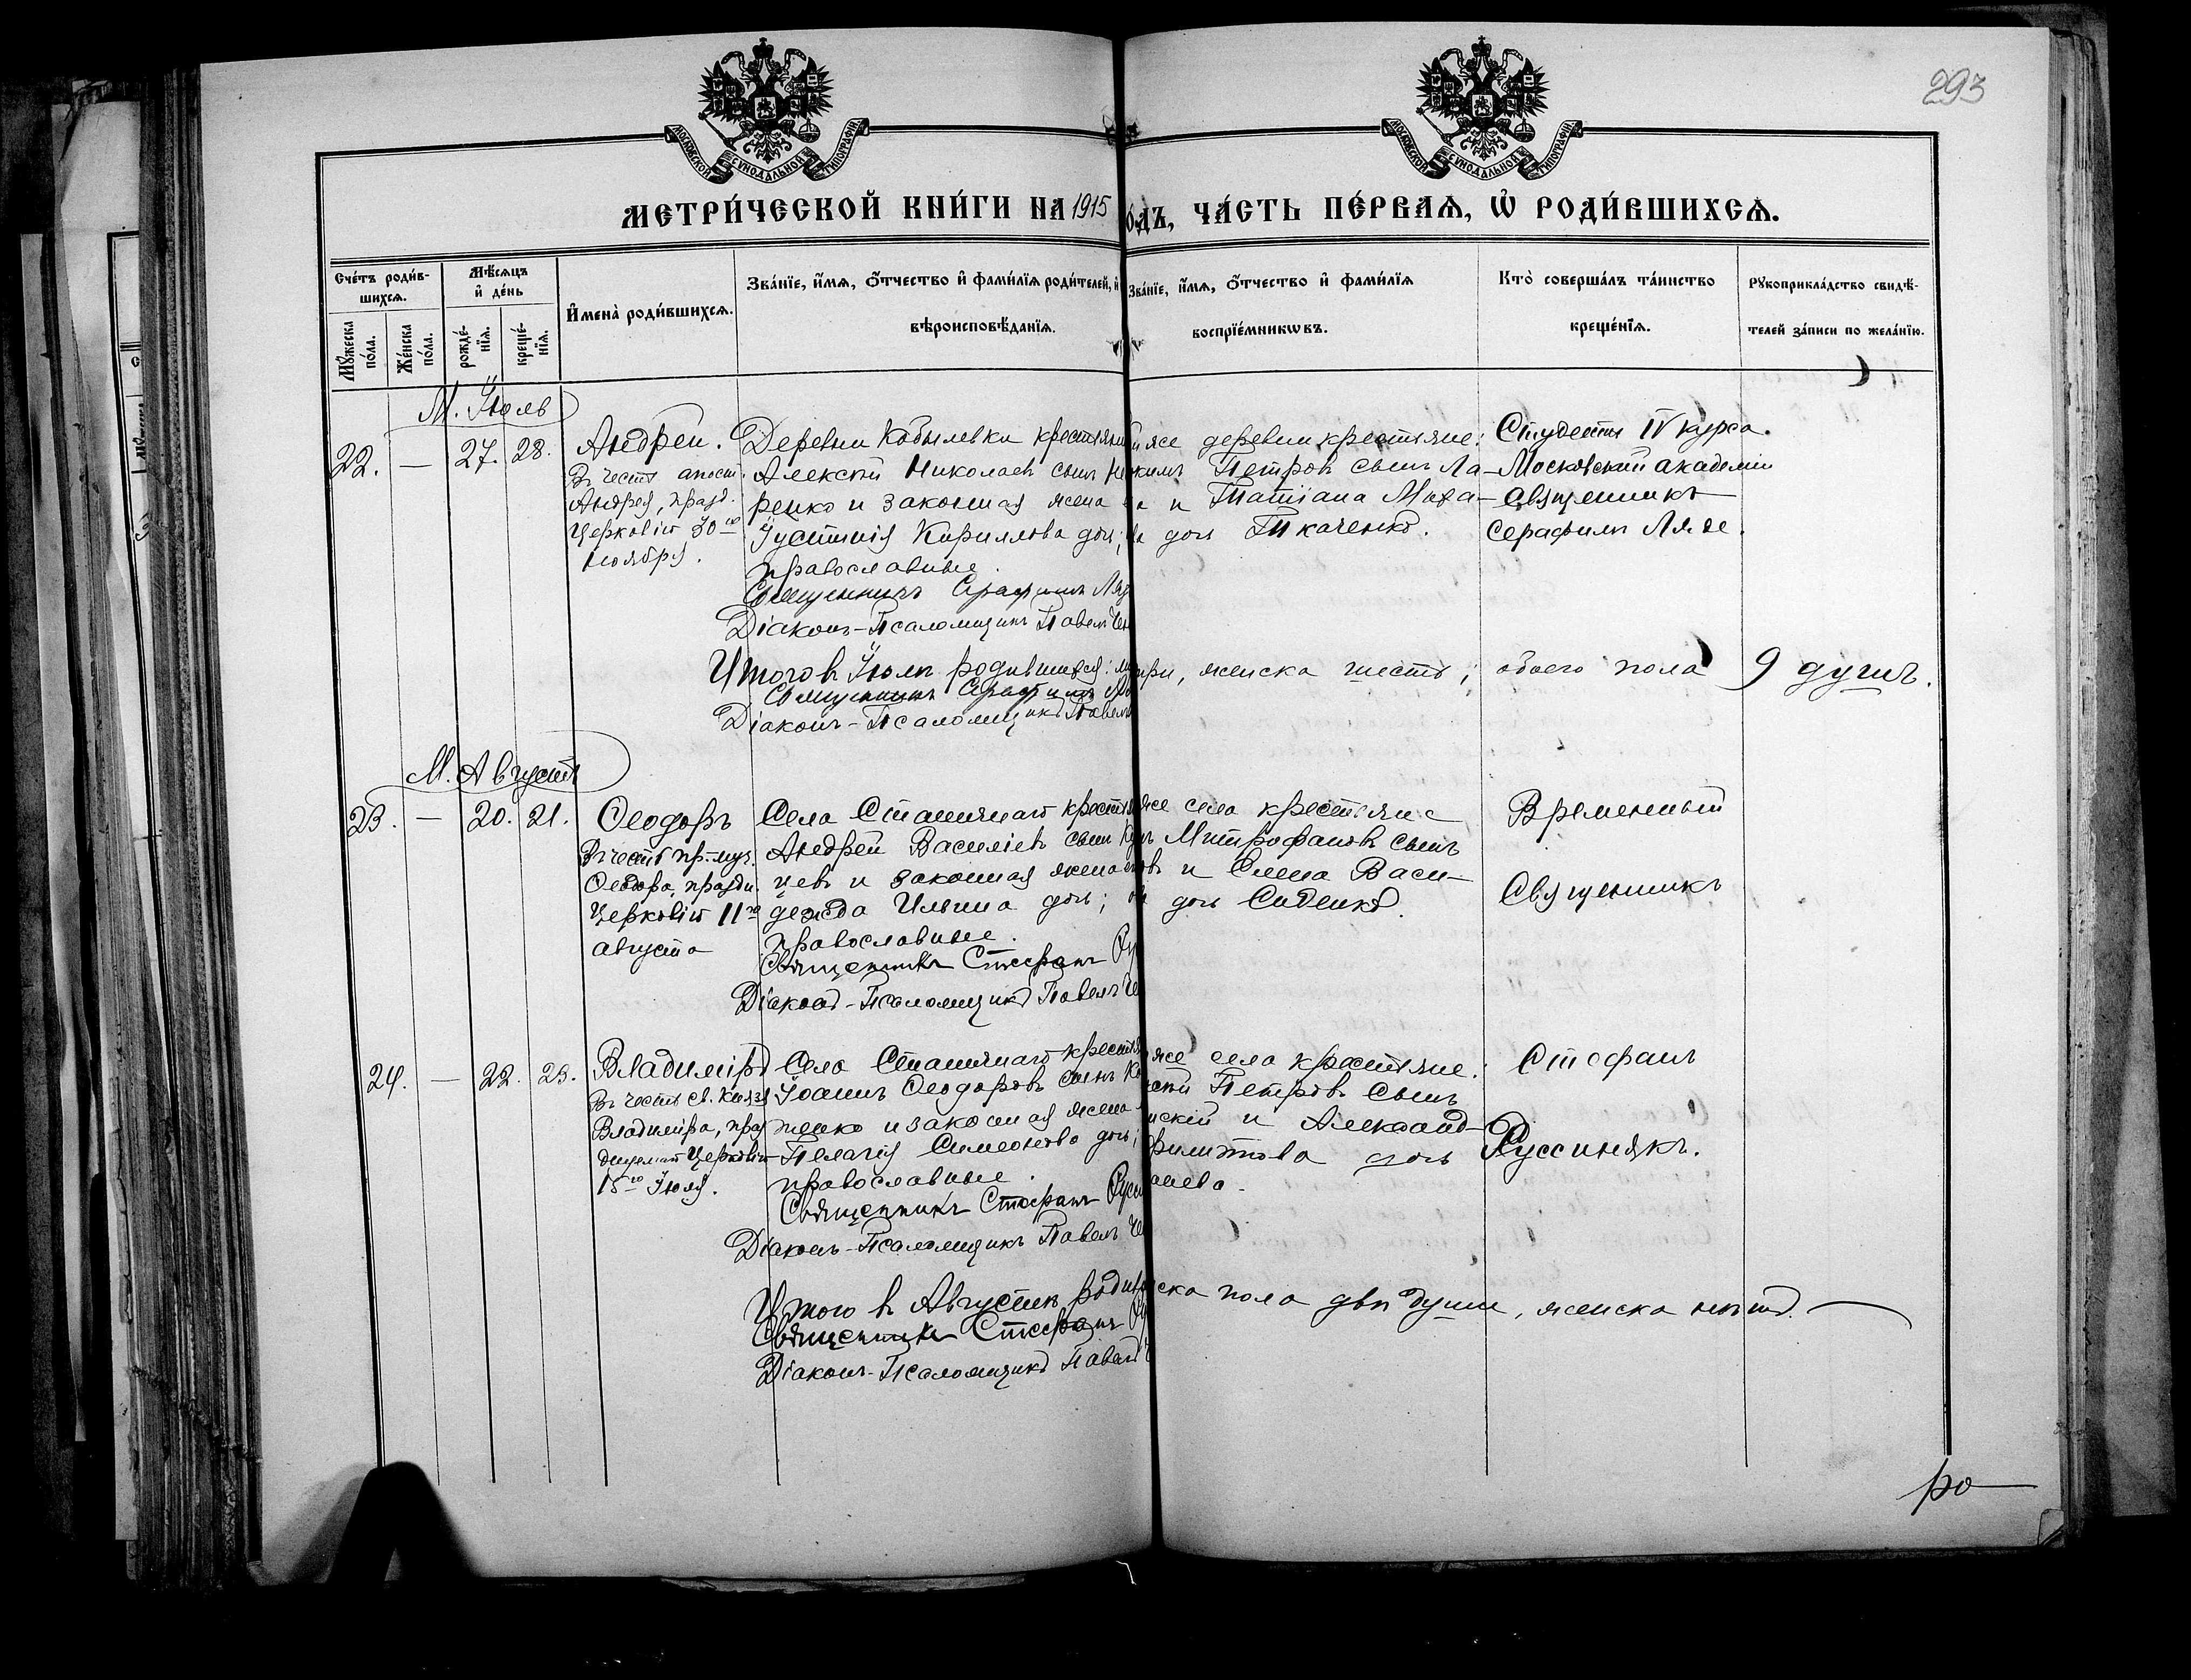 293
МОСКОВСКОЙ СѴНОДАЛЬНОЙ ТИПОГРАФІИ
МОСКОВСКОЙ СѴНОДАЛЬНОЙ ТИПОГРАФІИ
МЕТРИ́ЧЕСКОЙ КНИ́ГИ НА 1915 о́дъ, ЧА́СТЬ ПЕ́РВАѦ, Ѡ҆ РОДИ́ВШИХСѦ.
Сче́тъ роди́в-
шихсѧ.
Мѣ́сѧцъ
и҆ де́нь
Мꙋ́жеска по́ла.
Же́нска по́ла.
рожде́-
нїѧ.
креще́-
нїѧ.
И҆мена̀ роди́вшихсѧ.
Зва́нїе, и҆́мѧ, ѻ҆́тчество и҆ фами́лїѧ роди́телей, и҆
вѣроисповѣ́данїѧ.
Зва́нїе, и҆́мѧ, ѻ҆́тчество и҆ фами́лїѧ
воспрїе́мникѡвъ.
Кто̀ соверша́лъ та́инство
креще́нїѧ.
Рꙋкоприкла́дство свидѣ́-
телей за́писи по жела́нїю.
М. Іюль
22. — 27. 28.
Андрей.
Въ честь апост.
Андрея, празд.
Церковію 30го
ноября.
Деревни Кобылевки крестьяни
Алексѣй Николаевъ сынъ
ренко и законная жена
Іустинія Кириллова дочь;
православные.
Священникъ Серафимъ Ляд
Діаконъ-Псаломщикъ Павелъ Че
й же деревни крестьяне:
кимъ Петровъ сынъ Ла-
и Татіана Миха-
ва дочь Ткаченко.
Студентъ IV курса
Московской академіи
священникъ
Серафимъ Ляде.
Итого въ Іюлѣ родившихся: м три, женска шесть; обоего пола 9 душъ.
Священникъ Серафимъ Ля
Діаконъ-Псаломщикъ Павелъ
М. Августъ
23. — 20. 21.
Ѳеодоръ
Въ честь пр. муч.
Ѳеодора, праздн.
Церковію 11го
августа
Села Станичнаго крестья
Андрей Василіевъ сынъ Ку
цевъ и законная жена
дежда Ильина дочь;
православные.
Священникъ Стефанъ Ру
Діаконъ-Псаломщикъ Павелъ Че
же села крестьяне
Митрофановъ сынъ
овъ и Елена Васи-
дочь Сиденко.
Временный
Священникъ
24. — 22. 23.
Владиміръ
Въ честь св. Князя
Владиміра, праз
днуемаго Церковію
15го Іюля.
Села Станичнаго крестья
Іоаннъ Ѳеодоровъ сынъ Ко
женко и законная жена
Пелагія Симеонова дочь;
православные.
Священникъ Стефанъ Русси
Діаконъ-Псаломщикъ Павелъ Че
же села крестьяне:
ексѣй Петровъ сынъ
нскій и Александ-
Филиппова дочь
аева.
Стефанъ
Руссинякъ.
Итого въ Августѣ родив жска пола двѣ души, женска нѣтъ. —
Священникъ Стефанъ Ру
Діаконъ-Псаломщикъ Павелъ Ч
ро